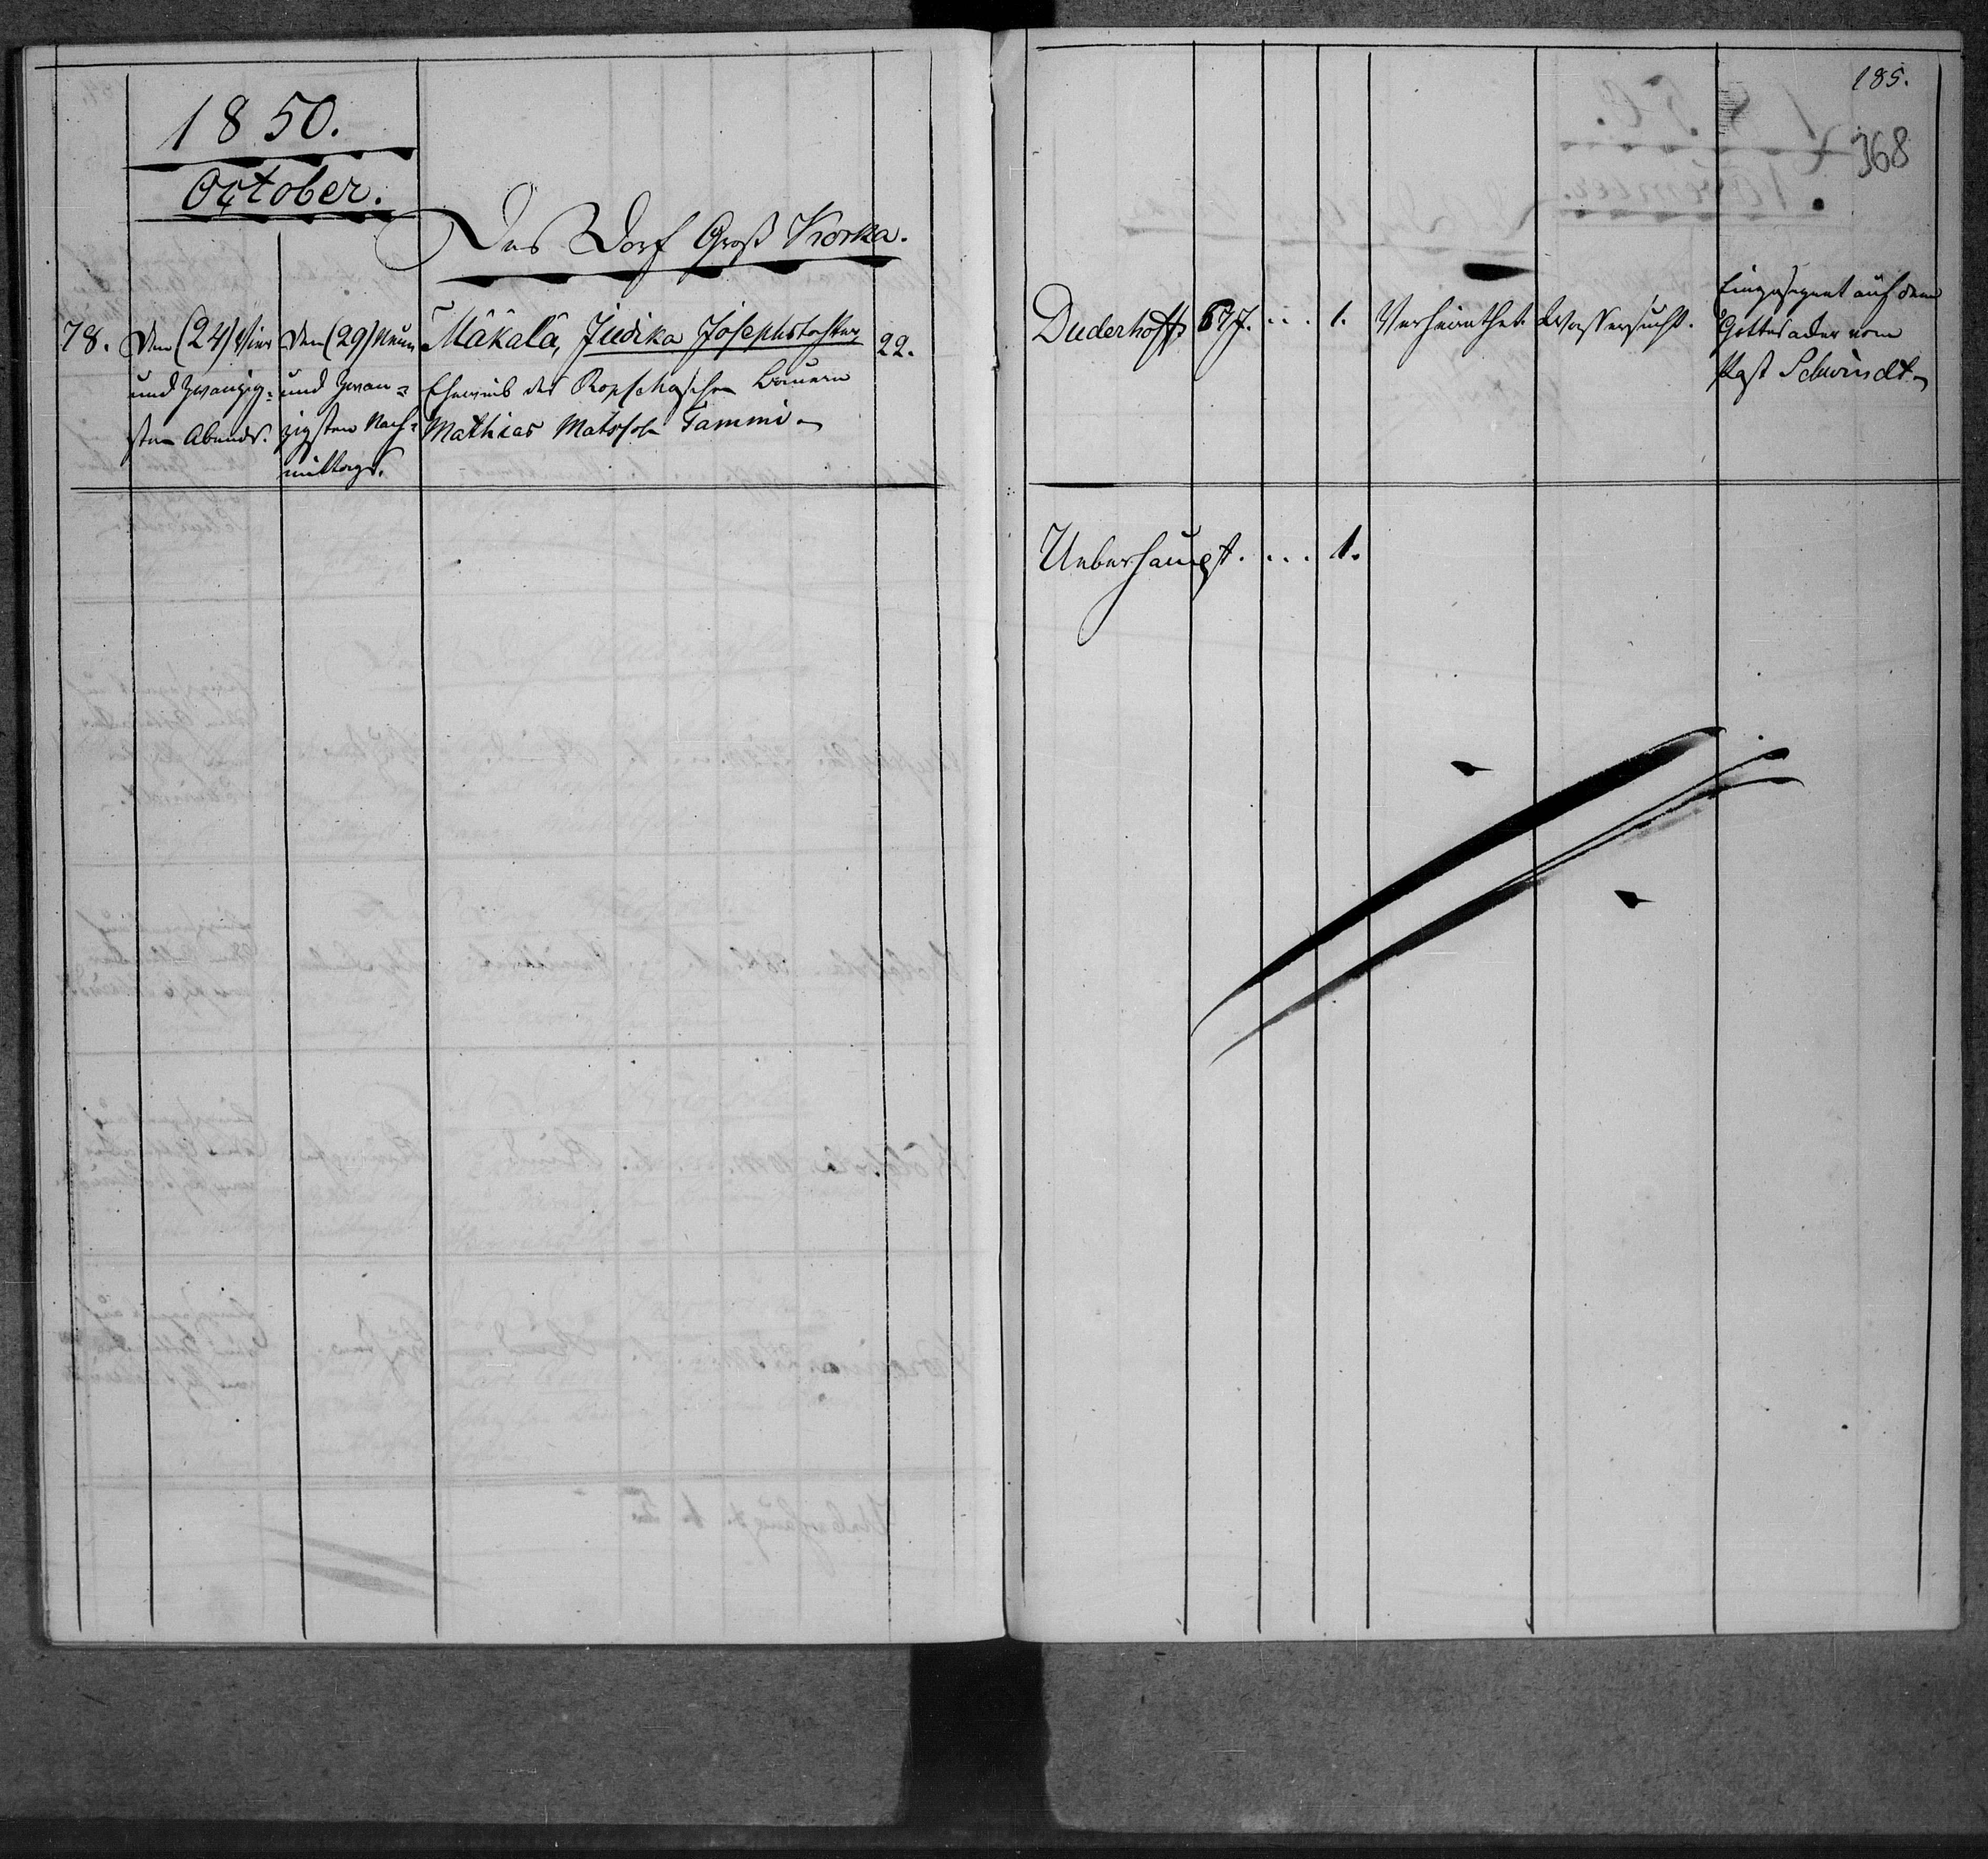 1850.
October.
Das Dorf Groß Korka.
78. Den (24) Vier
und zwanzig-
sten Abends.
Den (29) Neun
und zwan-
zigsten Nach-
mittags.
Mäkälä, Judika Josephstochter,
Eheweib des Ropschaschen Bauern
Mathias Matssohn Tammi
22.
185.
368
Duderhoff. 67 J. . . . 1. Verheirathet. Wassersucht.
Eingesegnet auf dem
Gottesacker vom
Past Schwindt
Ueberhaupt. . . . 1.